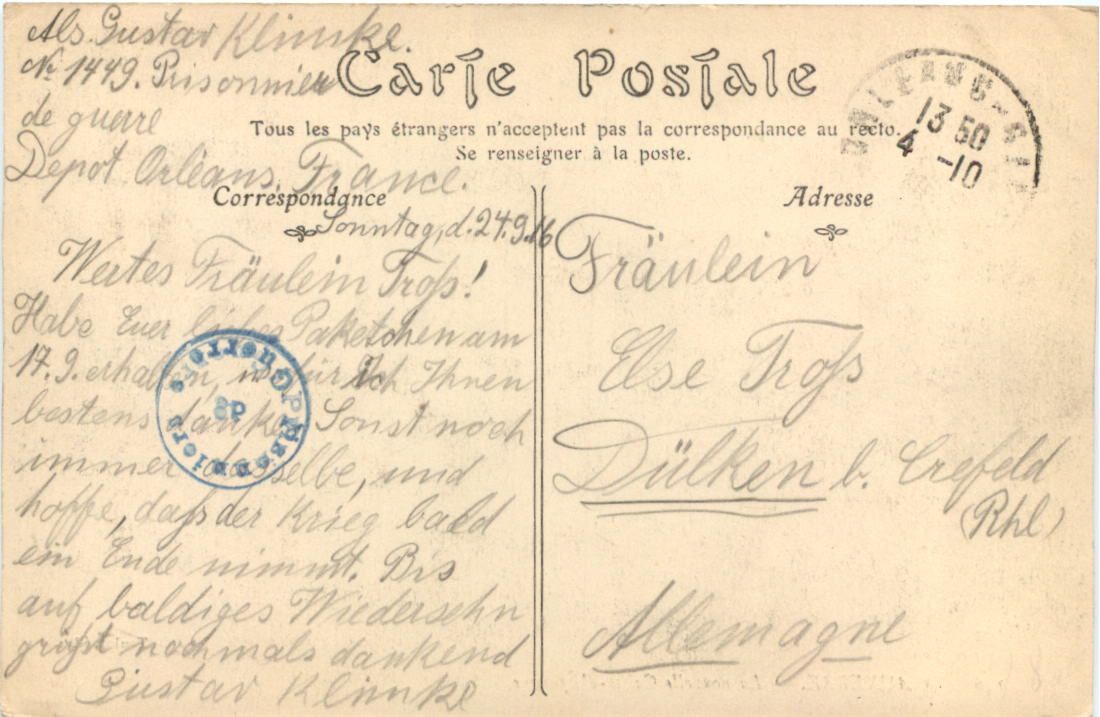 Abs. Gustav Klimke.
№ 1449. Prisonnier
de guerre
Depot Orléans, France.
Carte Postale
Tous les pays étrangers n'acceptent pas la correspondance au recto.
Se renseigner à la poste.
Correspondance
Sonntag, d. 24.9.16
Wertes Fräulein Troß!
Habe Euer liebes Paketchen am
17.9. erhalten, wofür ich Ihnen
bestens danke. Sonst noch
immer dasselbe, und
hoffe, daß der Krieg bald
ein Ende nimmt. Bis
auf baldiges Wiedersehn
grüßt nochmals dankend
Gustav Klimke
Prisonniers Guerre
Adresse
Fräulein
Else Troß
Dülken b. Crefeld
(Rhl)
Allemagne
ORLEANS-GARE
13 50
4 -10